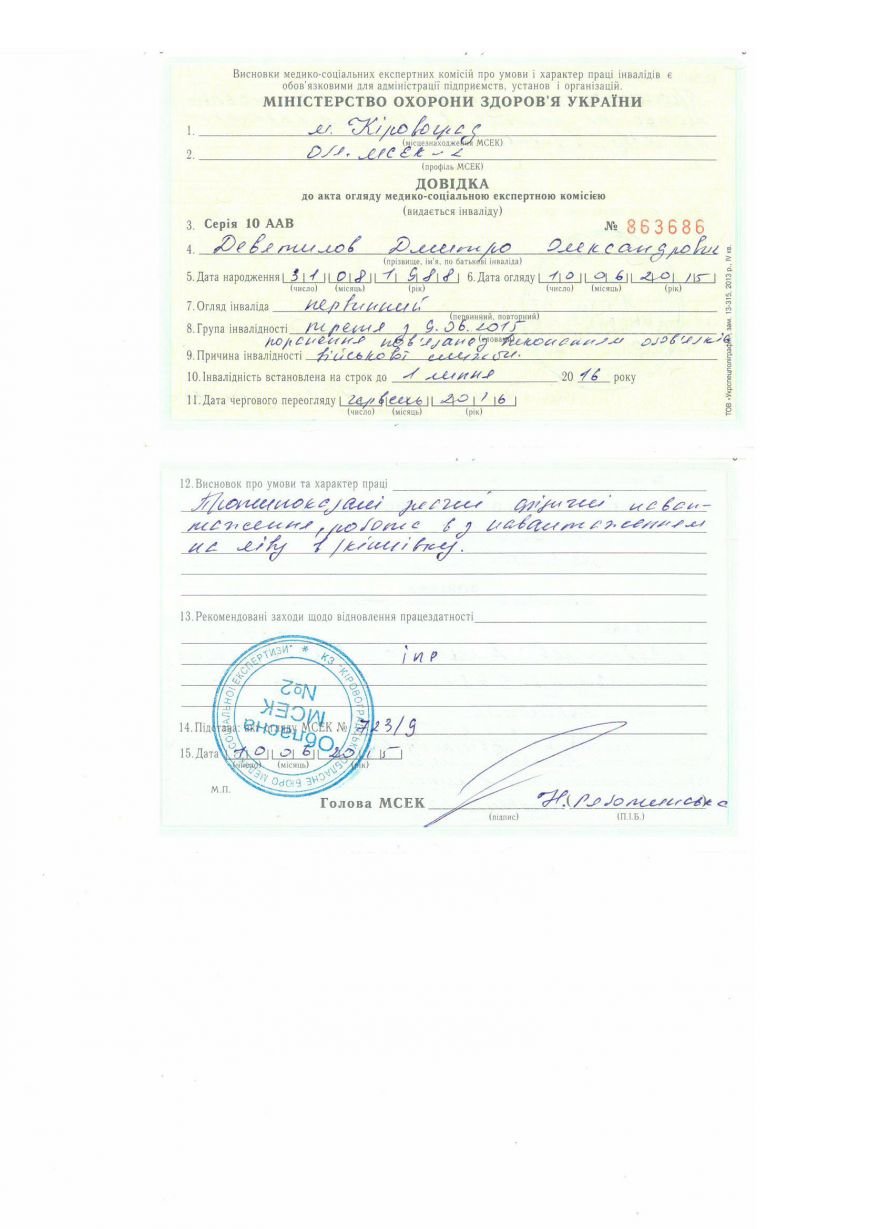 Висновки медико-соціальних експертних комісій про умови і характер праці інвалідів є
обов'язковими для адміністрації підприємств, установ і організацій.
МІНІСТЕРСТВО ОХОРОНИ ЗДОРОВ'Я УКРАЇНИ
1. м. Кіровоград
(місцезнаходження МСЕК)
2. Обл. МСЕК-2
(профіль МСЕК)
ДОВІДКА
до акта огляду медико-соціальною експертною комісією
(видається інваліду)
3. Серія 10 ААВ № 863686
4. Девятилов Дмитро Олександрович
(прізвище, ім'я, по батькові інваліда)
5. Дата народження 31 08 1988 6. Дата огляду 10 06 2015
(число) (місяць) (рік) (число) (місяць) (рік)
7. Огляд інваліда первинний
(первинний, повторний)
8. Група інвалідності третя з 9.06.2015
(словами)
поранення пов'язано з виконанням обов'язків
9. Причина інвалідності військової служби.
10. Інвалідність встановлена на строк до 1 липня 2016 року
11. Дата чергового переогляду червень 2016
(число) (місяць) (рік)
ТОВ «Укрспецполіграфія», зам. 13-315, 2013 р., IV кв.
12. Висновок про умови та характер праці
Протипоказані фізичні наван-
таження, робота з навантаженням
на ліву в/кінцівку.
13. Рекомендовані заходи щодо відновлення працездатності
іпр
14. Підстава: акт огляду МСЕК № 723/9
15. Дата 10 06 2015
(число) (місяць) (рік)
М.П.
КЗ "КІРОВОГРАДСЬКЕ ОБЛАСНЕ БЮРО МЕДИКО-СОЦІАЛЬНОЇ ЕКСПЕРТИЗИ" *
Обласна
МСЕК
№2
Голова МСЕК
(підпис) (П.І.Б.)